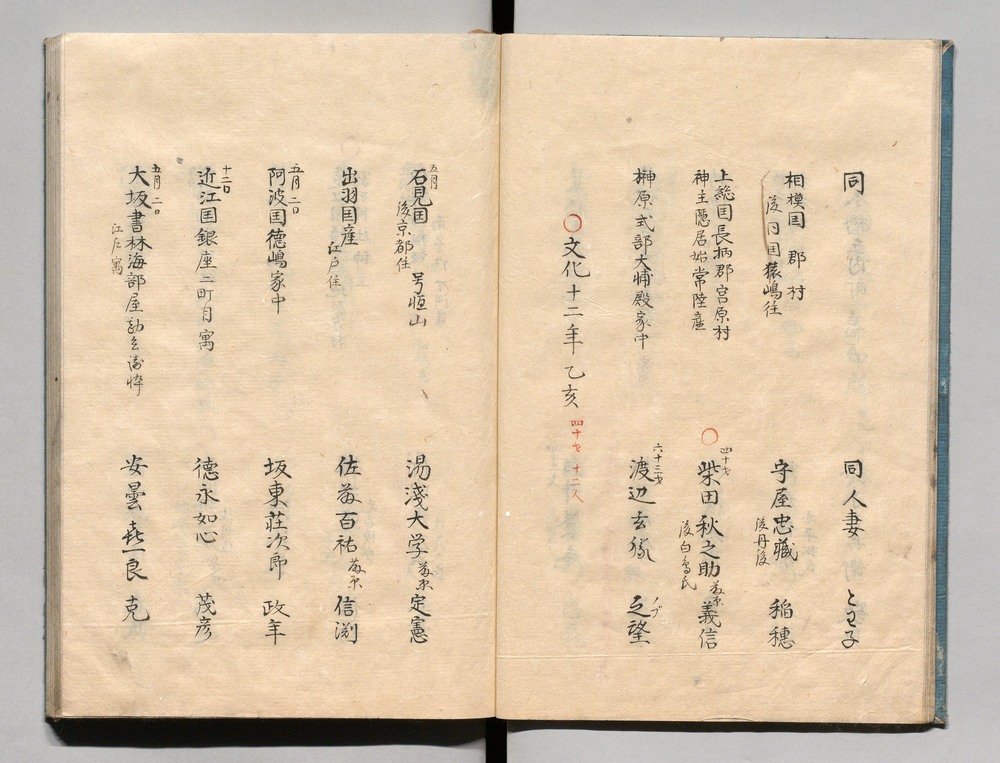 同　同人妻　とみ子
相模国　郡　村
後同国猿嶋住
守屋忠蔵　稲穂
後丹後
上総国長柄郡宮原村
神主隠居始常陸産
○
四十七
柴田秋之助　義信
藤原
後白鳥氏
榊原式部大輔殿家中
六十三才
渡辺玄　之望
ノブ
○文化十二年乙亥　四十七　十二人
五月
石見国　号恒山
後京都住
湯淺大学　定憲
藤原
出羽国産
江戸住
佐藤百祐　信渕
藤原
五月　二日
阿波国徳嶋家中
坂東荘次郎　政年
十二日
近江国銀座二町目寓
徳永如心　茂彦
五月　二日
大坂書林海部屋勘兵衛悴
江戸寓
安曇㐂一良　克